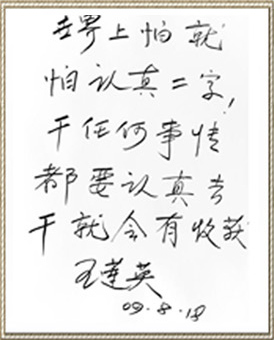 世界上怕就
怕认真二字,
干任何事情
都要认真去
干就会有收获
王莲英
09.8.18